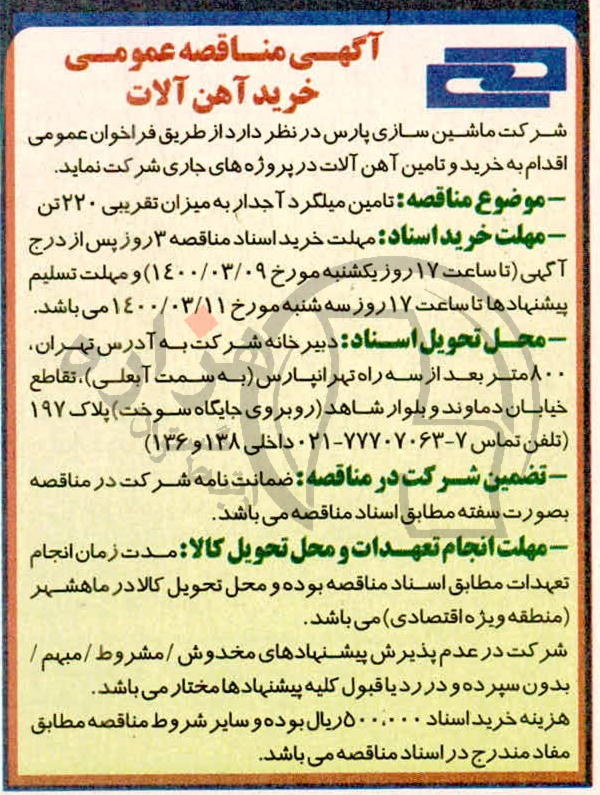 آگهی مناقصه عمومی
خرید آهن آلات
شرکت ماشین سازی پارس در نظر دارد از طریق فراخوان عمومی
اقدام به خرید و تامین آهن آلات در پروژه های جاری شرکت نماید.
– موضوع مناقصه: تامین میلگرد آجدار به میزان تقریبی ۲۲۰ تن
– مهلت خرید اسناد: مهلت خرید اسناد مناقصه ۳ روز پس از درج
آگهی (تا ساعت ۱۷ روز یکشنبه مورخ ۱۴۰۰/۰۳/۰۹) و مهلت تسلیم
پیشنهادها تا ساعت ۱۷ روز سه شنبه مورخ ۱۴۰۰/۰۳/۱۱ می باشد.
– محل تحویل اسناد: دبیرخانه شرکت به آدرس تهران،
۸۰۰ متر بعد از سه راه تهرانپارس (به سمت آبعلی)، تقاطع
خیابان دماوند و بلوار شاهد (روبروی جایگاه سوخت) پلاک ۱۹۷
(تلفن تماس ۷-۷۷۷۰۷۰۶۳-۰۲۱ داخلی ۱۳۸ و ۱۳۶)
– تضمین شرکت در مناقصه: ضمانت نامه شرکت در مناقصه
بصورت سفته مطابق اسناد مناقصه می باشد.
– مهلت انجام تعهدات و محل تحویل کالا: مدت زمان انجام
تعهدات مطابق اسناد مناقصه بوده و محل تحویل کالا در ماهشهر
(منطقه ویژه اقتصادی) می باشد.
شرکت در عدم پذیرش پیشنهادهای مخدوش / مشروط / مبهم /
بدون سپرده و در رد یا قبول کلیه پیشنهادها مختار می باشد.
هزینه خرید اسناد ۵۰۰,۰۰۰ ریال بوده و سایر شروط مناقصه مطابق
مفاد مندرج در اسناد مناقصه می باشد.